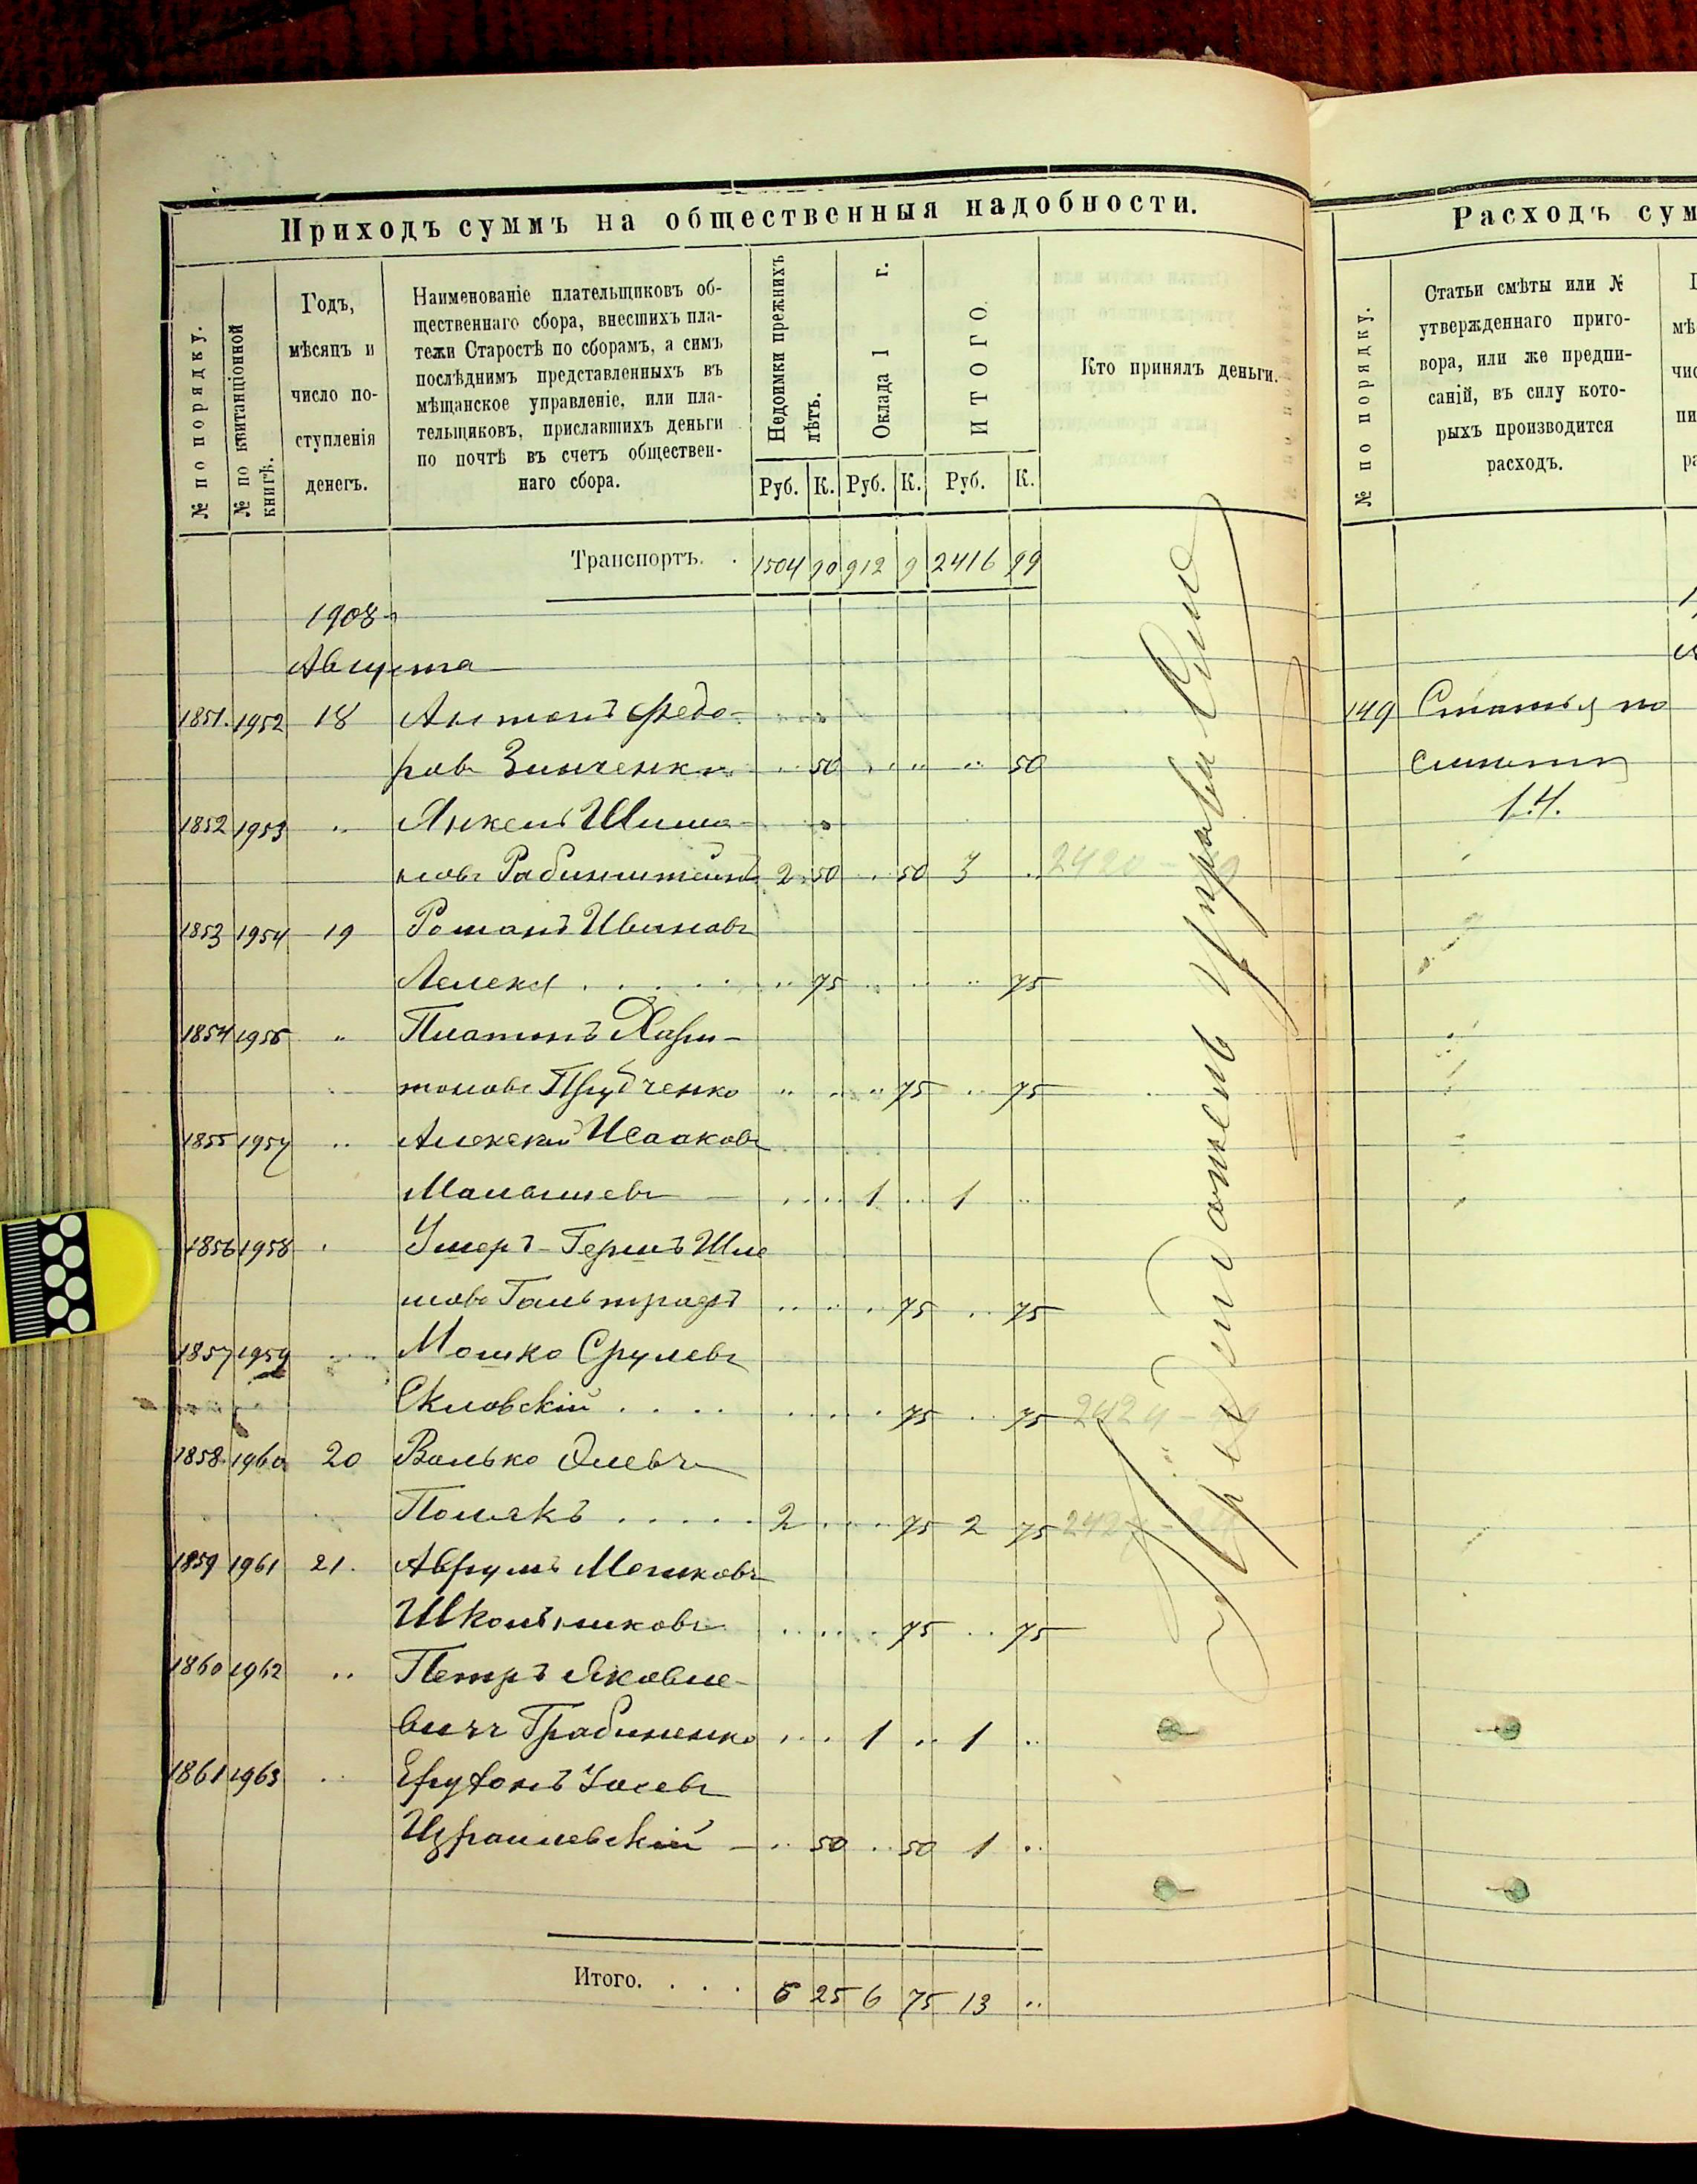 Приходъ суммъ на общественныя надобности.
№ по порядку.
№ по квитанціонной книгѣ.
Годъ,
мѣсяцъ и
число по-
ступленія
денегъ.
Наименованіе плательщиковъ об-
щественнаго сбора, внесшихъ пла-
тежи Старостѣ по сборамъ, а симъ
послѣднимъ представленныхъ въ
мѣщанское управленіе, или пла-
тельщиковъ, приславшихъ деньги
по почтѣ въ счетъ обществен-
наго сбора.
Недоимки прежнихъ лѣтъ.
Оклада 1 г.
ИТОГО
Кто принялъ деньги.
Руб. К. Руб. К. Руб. К.
Транспортъ. . 1504 90 912 9 2416 99
1908
Августа
1851. 1952 18 Антонъ Федо-
ровъ Зинченко .. 50 . .. .. 50
1852 1953 .. Янкель Шлиома-
2 50 . 50 3 . 2420 - 
1853 1954 19 Романъ Ивановъ
Лелека . . . . . .. 75 .. .. .. 75
1854 1956 .. Платонъ Хари-
тоновъ .. .. .. 75 .. 75
1855 1957 .. Алексѣй Исааковъ
.. .. 1 .. 1 ..
1856 1958 . Умеръ-Гершъ Шле
мовъ .. .. . 75 .. 75
1857 1959 Мошко Срулевъ
Скловскій . . . . .. .. . 75 .. 75
1858. 1960 20 Валько
Полякъ . . . . . 2 .. .. 75 2 75
1859 1961 21. Аврумъ Мошковъ
Школьниковъ .. .. . 75 .. 75
1860 1962 .. Петръ Яковле-
вичъ Грабиненко .. .. 1 .. 1 ..
1861 1963 ..
Израилевскій - .. 50 .. 50 1 ..
Итого. . . . 6 25 6 75 13 ..
Расходъ сум
№ по порядку.
Статьи смѣты или №
утвержденнаго приго-
вора, или же предпи-
саній, въ силу кото-
рыхъ производится
расходъ.
149 Статья по
14.